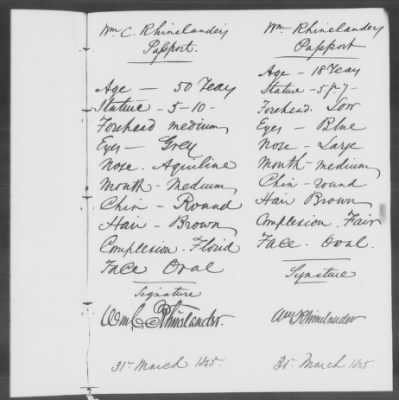 Wm C. Rhinelander
Passport.
Age — 50 Years
Stature — 5-10-
Forehead medium
Eyes — Grey
Nose. Aquiline
Mouth - Medium
Chin - Round
Hair - Brown
Complexion - Florid
Face Oval
Signature
Wm C. Rhinelander.
31st March 1845.
Wm. Rhinelander
Passport
Age - 18 Years
Stature - 5 f. 7 -
Forehead. Low
Eyes - Blue
Nose - Large
Mouth - medium
Chin - round
Hair Brown
Complexion. Fair
Face. Oval.
Signature
Wm Rhinelander
31st March 1845